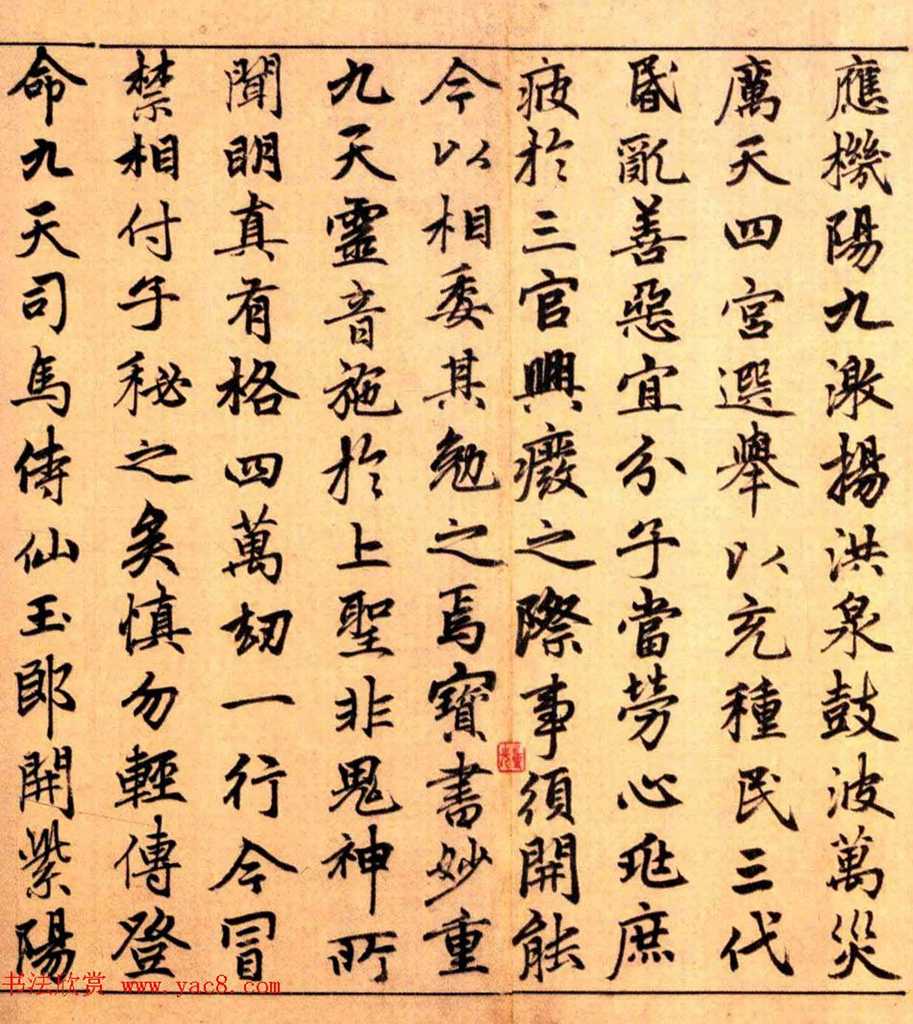 應機陽九激揚洪泉鼓波萬災
厲天四宮選舉以充種民三代
昬亂善惡宜分子當勞心𤯝庶
疲於三官興癈之際事須開能
今以相委其勉之焉寶書妙重
九天靈音施於上聖非鬼神所
聞明真有格四萬劫一行今冒
禁相付子秘之矣慎勿輕傳登
命九天司馬侍仙玉郎開紫陽
书法欣赏 www.yac8.com